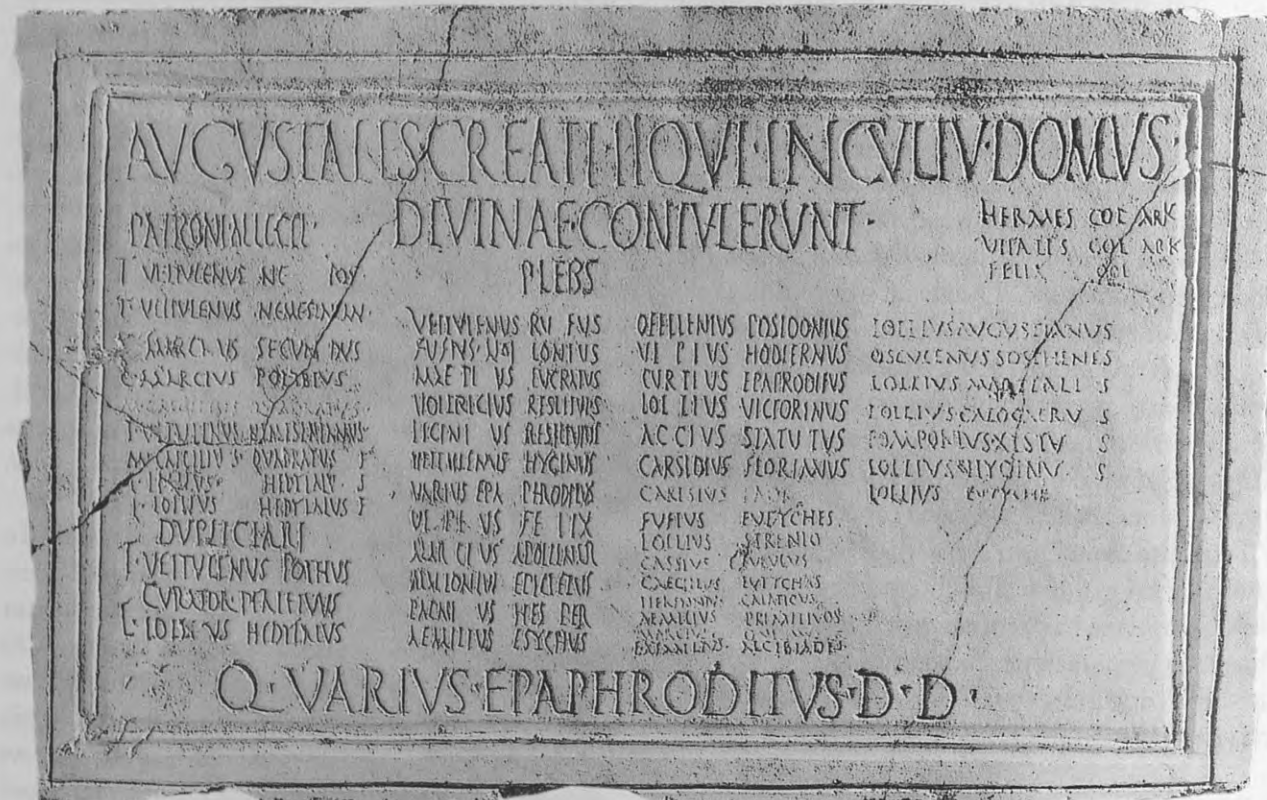 AVGVSTALES CREATI·HI·QVI·IN CVLTV·DOMVS·
DIVINAE·CONTVLERVNT·
PATRONI ALLECTI·
T VETTVLENVS
T· VETTVLENVS NEMESIANVN·
MARCIVS SECVNDVS
C· MARCIVS POLYBIVS
T VETTVLENVS NEMESINIANVS
M CAECILIVS QVADRATVS F
HEDYLALV S
L· LOLLIVS HEDYLALVS F
DVPLICIARI
T· VETTVLENVS POTHVS
CVRATOR PERPETVVS
L· LOLLIVS HEDYLALVS
PLEBS
VETTVLENVS RV FVS
MAE TI VS EVCRATVS
VOLTRICIVS RESTITVTVS
LICINI VS RESTITVTVS
VETTVLENVS HYGINVS
VARIVS EPA PHRODITVS
VL PI VS FE LIX
MAR CI VS APOLLINAR
EPICTETVS
PACNI VS HES PER
AEMILIVS ESYCHVS
OFELLENIVS POSIDONIVS
VL PIVS HODIERNVS
CVRTI VS EPAPRODITVS
LOL LI VS VICTORINVS
AC CI VS STATV TVS
CARSIDIVS FLORIANVS
CARISIVS
FVFIVS EVTYCHES
LOLLIVS SIRENIO
CASSIVS
CAECILVS EVTYCHAS
CALATICVS
AEMILIVS PRIMITIVOS
ALCIBIADES
HERMES COL ARK
VITALIS COL ARK
FELIX COL
LOLLIVS AVGVSTIANVS
OSCVLENVS SOSTHENES
LOLLIVS MARTIALI S
LOLLIVS CALOCAERV S
POMPONIVS XISTV S
LOLLIVS HYGINV S
LOLLIVS EVTYCHE
Q· VARIVS·EPAPHRODITVS·D·D·